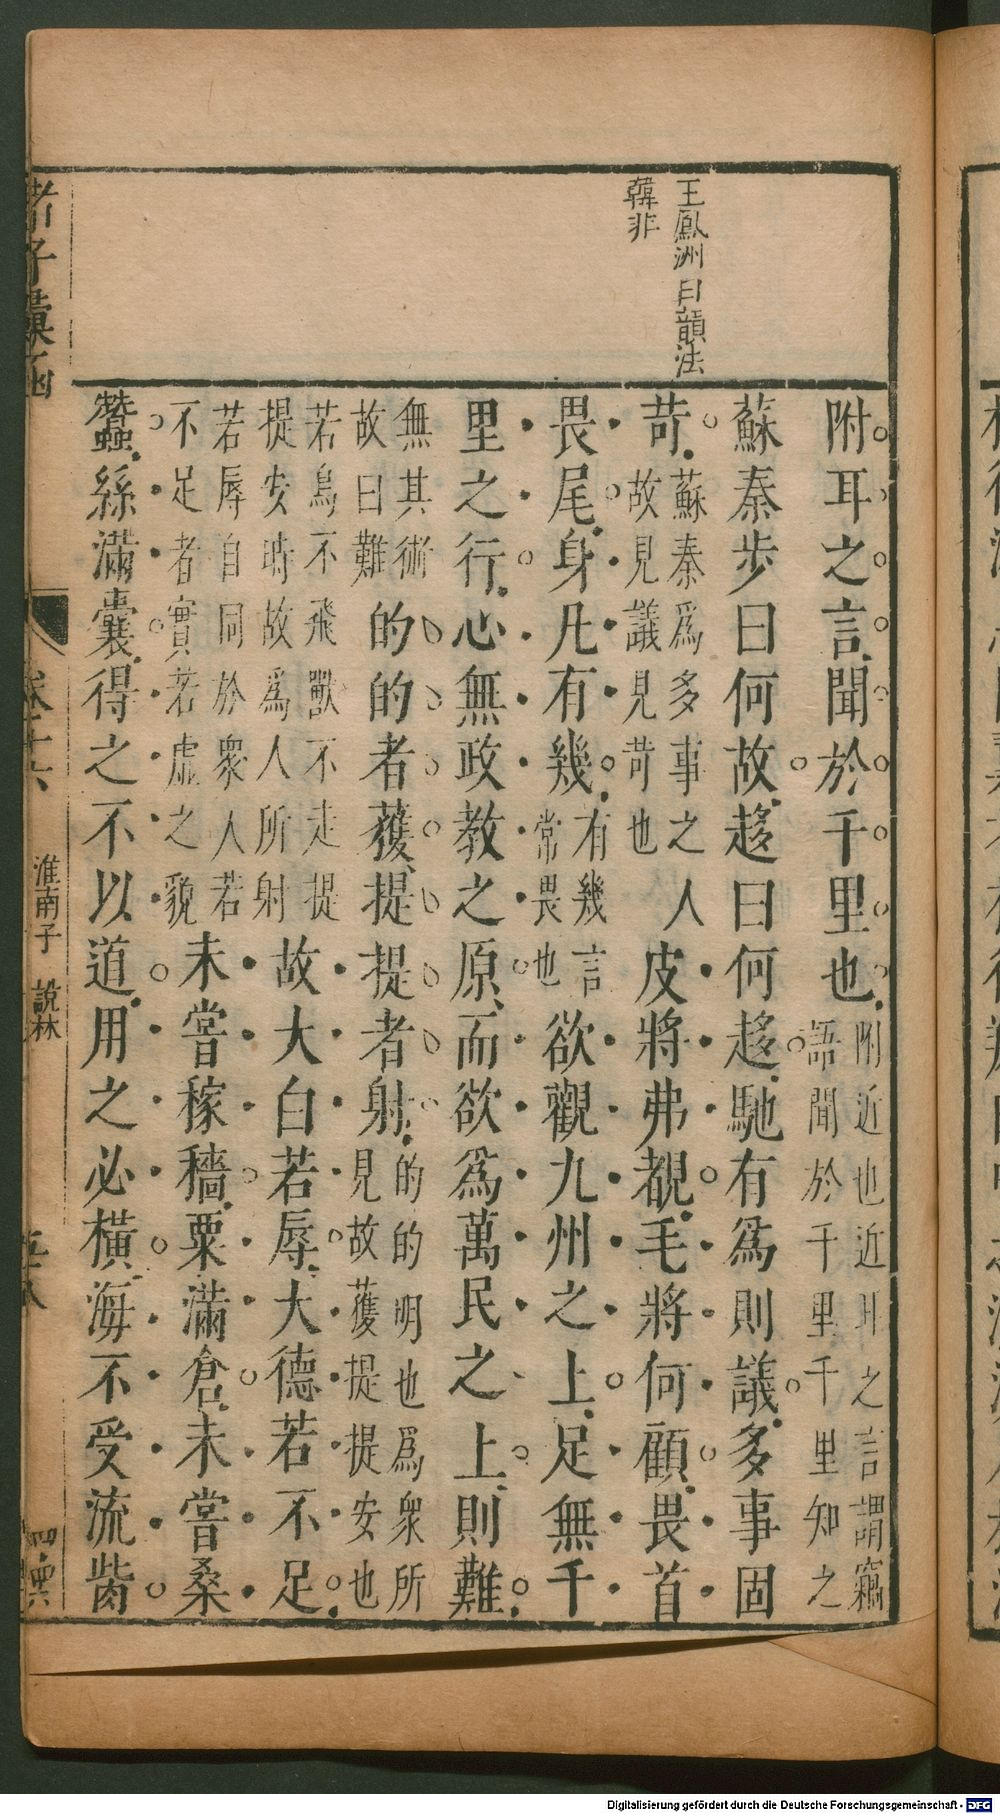 王鳳洲曰韻法
韓非
附耳之言聞於千里也附近也近耳之言謂竊
語聞於千里千里知之
蘇秦步曰何故趍曰何趍馳有爲則議多事固
苛蘇秦爲多事之人
故見議見苛也
皮將弗覩毛將何顧畏首
畏尾身凡有幾有幾言
常畏也
欲觀九州之上足無千
里之行心無政教之原而欲爲萬民之上則難
無其術
故曰難
的的者獲提提者射的的明也爲衆所
見故獲提提安也
若鳥不飛獸不走提
提安時故爲人所射
故大白若辱大德若不足
若辱自同於衆人若
不足者實若虛之貌
未嘗稼穡粟滿倉未嘗桑
蠶絲滿囊得之不以道用之必橫海不受流胔
諸子彙函
卷十六
淮南子 說林